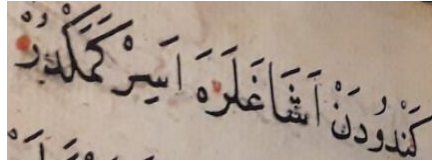 كَنْدُودَنْ اَشَاغَلَرَهَ اَسِرْكَمَكْدُرْ